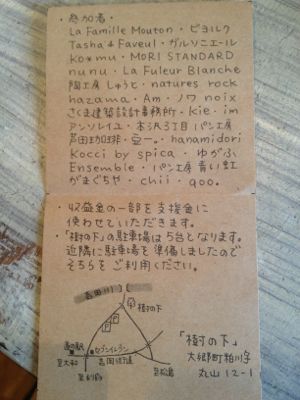 ・参加者・
La Famille Mouton・ピヨルク
Tasha & Faveul・ガルソニエール
Ko*mu・MORI STANDARD
nunu・La Fuleur Blanche
陶工房 しゅうと・natures rock
hazama・Am・ノワ noix
さくま建築設計事務所・Kie. im
アンソレイユ・本沢3丁目 パン工房
芦田珈琲・壺一。・hanamidori
Kocci by spica・ゆがふ
Ensemble・パン工房 青い虹
がまぐちや・chii・qoo.
・収益金の一部を支援金に
使わせていただきます。
「樹の下」の駐車場は5台となります。
近隣に駐車場を準備しましたので
そちらをご利用ください。
吉田川
樹の下
P
P
道の駅
セブンイレブン
至大和
至利府
吉岡街道
至松島
「樹の下」
大郷町粕川字
丸山12-1